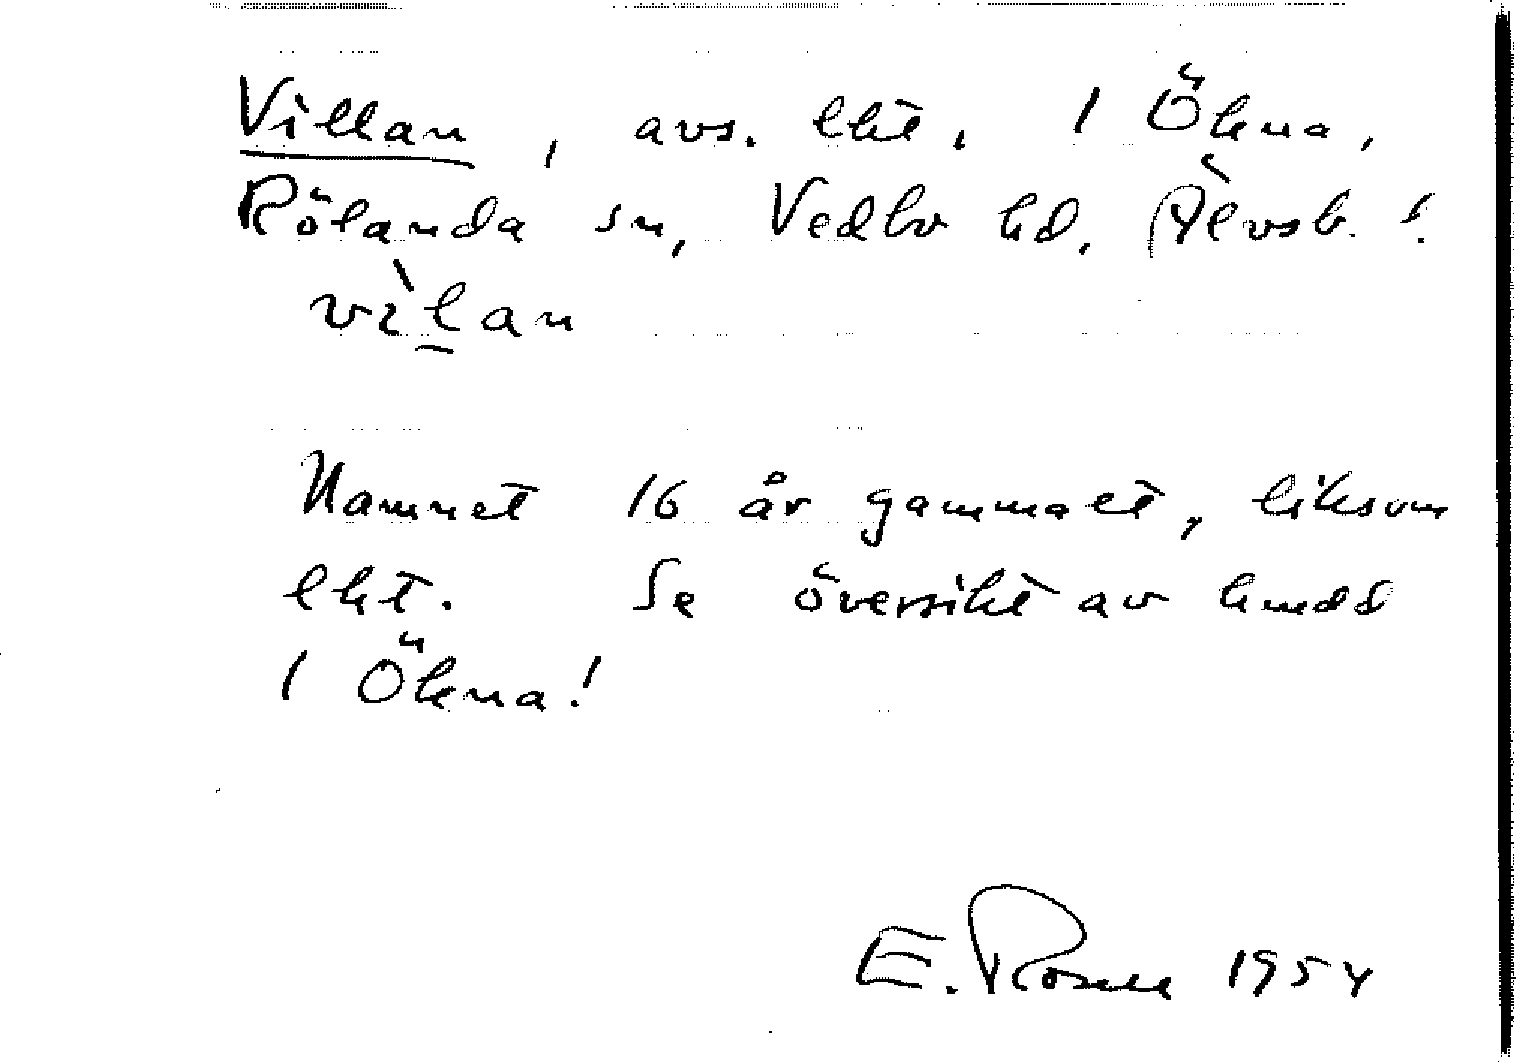 Villan, avs. lht. 1 Ökna,
Rölanda sn, Vedbo hd, Älvsb. l.
vìlan
Namnet 16 år gammalt, liksom
lht. Se översikt av hmdd
1 Ökna!
E. Rosell 1954